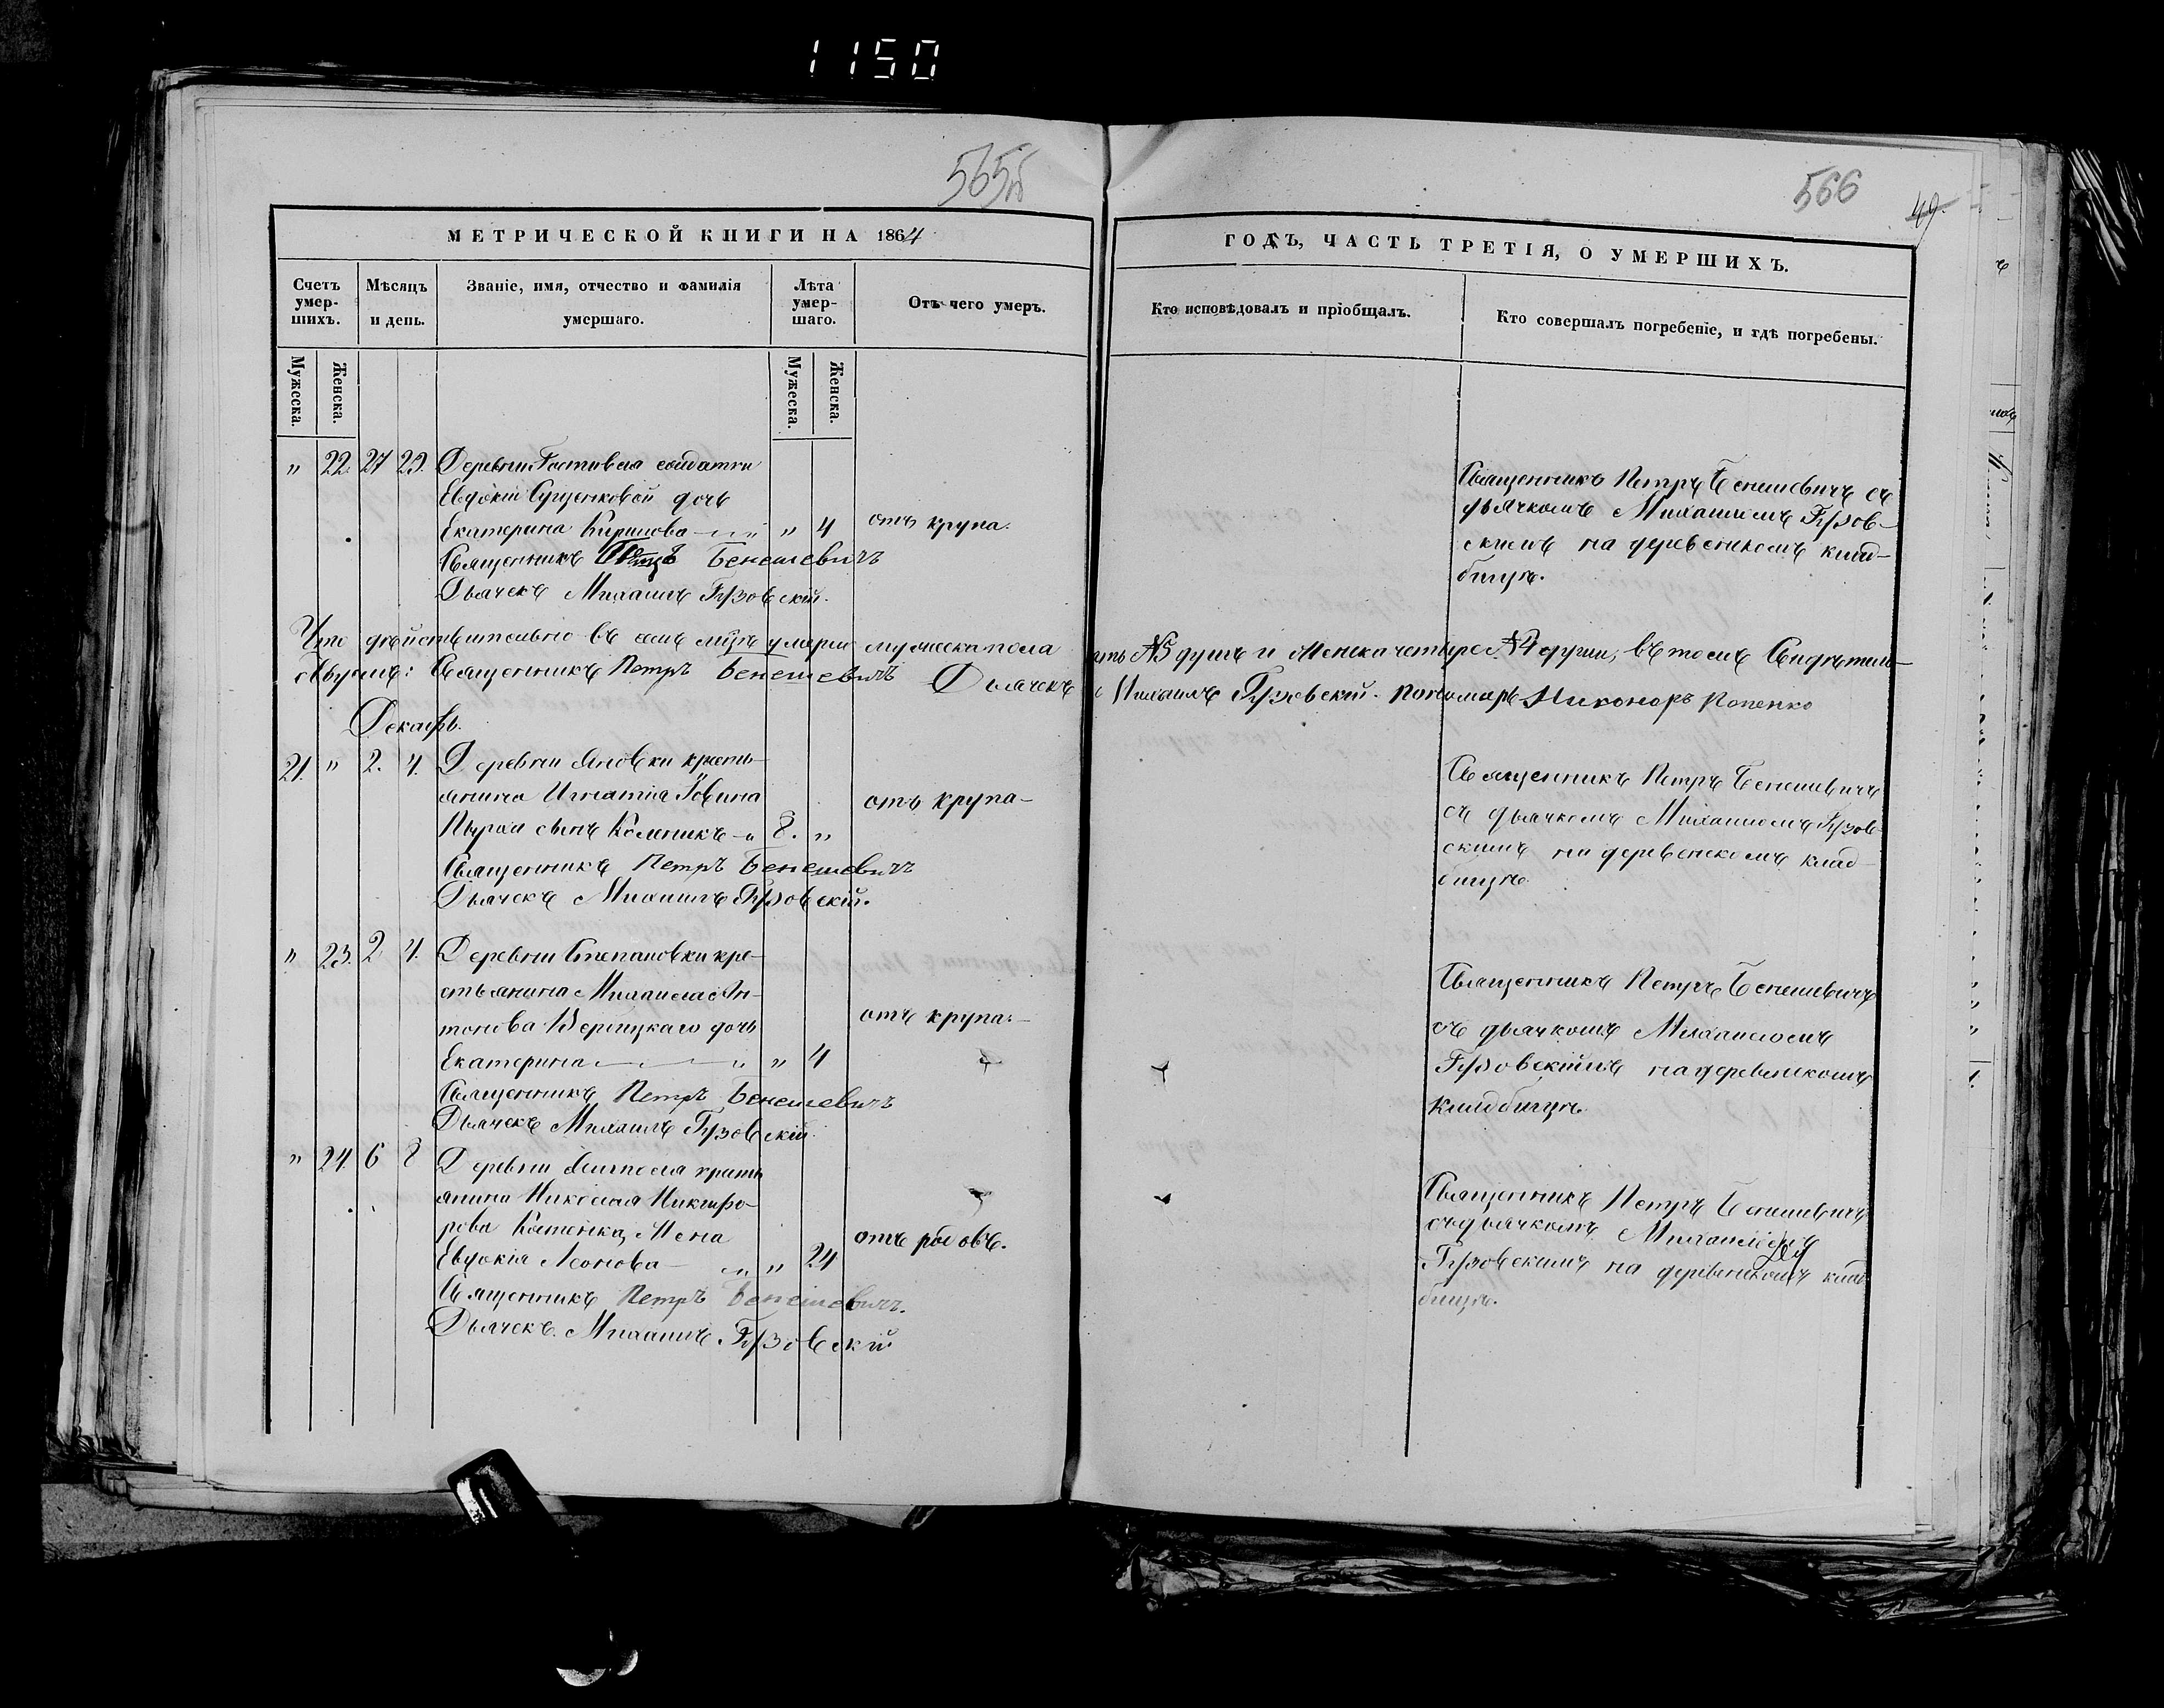 1150
565об
566
49.
МЕТРИЧЕСКОЙ КНИГИ НА 1864
ГОДЪ, ЧАСТЬ ТРЕТІЯ, О УМЕРШИХЪ.
Счетъ умер-шихъ.
Мѣсяцъ и день.
Званіе, имя, отчество и фамилія умершаго.
Лѣта умер-шаго.
Отъ чего умеръ.
Кто исповѣдовалъ и пріобщалъ.
Кто совершалъ погребеніе, и гдѣ погребены.
Мужеска.
Женска.
Мужеска.
Женска.
" 22. 27 29. Деревни солдатки
Евдокіи дочь
Екатерина Кирилова " 4 отъ крупа.
Священникъ Петръ Бенешевичъ
Дьячекъ Михаилъ Грзовскій.
Священникъ Петръ Бенешевичъ съ
дьячкомъ Михаиломъ Грзов-
скимъ на деревенскомъ клад-
бищѣ.
Что дѣйствительно въ семъ м-цѣ умерло мужеска пола пять №5 душъ и женска четыре №4 души, въ томъ Свидѣтель-
ствуемъ: Священникъ Петръ Бенешевичъ Дьячекъ Михаилъ Грзовскій. Пономарь Никоноръ Попенко
Декабрь.
21 " 2. 4. Деревни Яновки кресть-
янина Игнатія
сынъ 8. " отъ крупа
Священникъ Петръ Бенешевичъ
Дьячекъ Михаилъ Грзовскій.
Священникъ Петръ Бенешевичъ
съ дьячкомъ Михаиломъ Грзов-
скимъ на деревенскомъ клад-
бищѣ
" 23. 2 4. Деревни Степановки кре-
стьянина Михаила Ан-
тонова Вербицкаго дочь отъ крупа.
Екатерина " 4
Священникъ Петръ Бенешевичъ
Дьячекъ Михаилъ Грзовскій
Священникъ Петръ Бенешевичъ
съ дьячкомъ Михаиломъ
Грзовскимъ на деревенскомъ
кладбищѣ.
" 24. 6 8 Деревни кресть
янина Николая Никифо-
рова Костенка, жена
Евдокія Леонова " 24 отъ родовъ.
Священникъ Петръ Бенешевичъ.
Дьячекъ. Михаилъ Грзовскій
Священникъ Петръ Бенешевичъ
съ дьячкомъ Михаиломъ
Грзовскимъ на деревенскомъ клад
бищѣ.